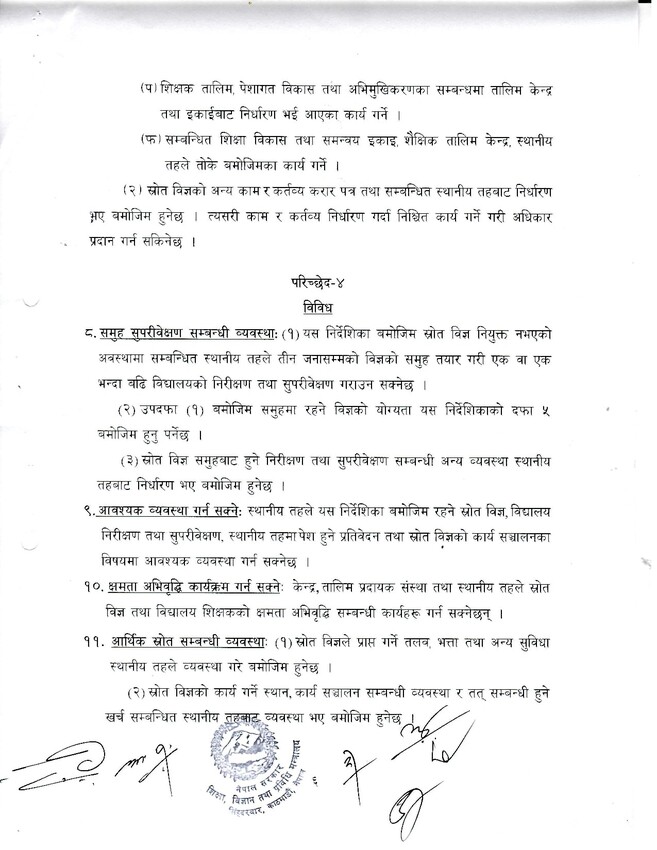 (प) शिक्षक तालिम, पेशागत विकास तथा अभिमुखिकरणका सम्बन्धमा तालिम केन्द्र
तथा इकाईबाट निर्धारण भई आएका कार्य गर्ने ।
(फ) सम्बन्धित शिक्षा विकास तथा समन्वय इकाइ, शैक्षिक तालिम केन्द्र, स्थानीय
तहले तोके बमोजिमका कार्य गर्ने ।
(२) स्रोत विज्ञको अन्य काम र कर्तव्य करार पत्र तथा सम्बन्धित स्थानीय तहबाट निर्धारण
भए बमोजिम हुनेछ । त्यसरी काम र कर्तव्य निर्धारण गर्दा निश्चित कार्य गर्ने गरी अधिकार
प्रदान गर्न सकिनेछ ।
परिच्छेद-४
विविध
८. समुह सुपरीवेक्षण सम्बन्धी व्यवस्था: (१) यस निर्देशिका बमोजिम स्रोत विज्ञ नियुक्त नभएको
अवस्थामा सम्बन्धित स्थानीय तहले तीन जनासम्मको विज्ञको समुह तयार गरी एक वा एक
भन्दा बढि विद्यालयको निरीक्षण तथा सुपरीवेक्षण गराउन सक्नेछ ।
(२) उपदफा (१) बमोजिम समुहमा रहने विज्ञको योग्यता यस निर्देशिकाको दफा ५
बमोजिम हुनु पर्नेछ ।
(३) स्रोत विज्ञ समुहबाट हुने निरीक्षण तथा सुपरीवेक्षण सम्बन्धी अन्य व्यवस्था स्थानीय
तहबाट निर्धारण भए बमोजिम हुनेछ ।
९. आवश्यक व्यवस्था गर्न सक्ने: स्थानीय तहले यस निर्देशिका बमोजिम रहने स्रोत विज्ञ, विद्यालय
निरीक्षण तथा सुपरीवेक्षण, स्थानीय तहमा पेश हुने प्रतिवेदन तथा स्रोत विज्ञको कार्य सञ्चालनका
विषयमा आवश्यक व्यवस्था गर्न सक्नेछ ।
१०. क्षमता अभिवृद्धि कार्यक्रम गर्न सक्ने: केन्द्र, तालिम प्रदायक संस्था तथा स्थानीय तहले स्रोत
विज्ञ तथा विद्यालय शिक्षकको क्षमता अभिवृद्धि सम्बन्धी कार्यहरू गर्न सक्नेछन् ।
११. आर्थिक स्रोत सम्बन्धी व्यवस्था: (१) स्रोत विज्ञले प्राप्त गर्ने तलब, भत्ता तथा अन्य सुविधा
स्थानीय तहले व्यवस्था गरे बमोजिम हुनेछ ।
(२) स्रोत विज्ञको कार्य गर्ने स्थान, कार्य सञ्चालन सम्बन्धी व्यवस्था र तत् सम्बन्धी हुने
खर्च सम्बन्धित स्थानीय तहबाट व्यवस्था भए बमोजिम हुनेछ ।
नेपाल सरकार
शिक्षा, विज्ञान तथा प्रविधि मन्त्रालय
सिंहदरबार, काठमाडौं, नेपाल
६